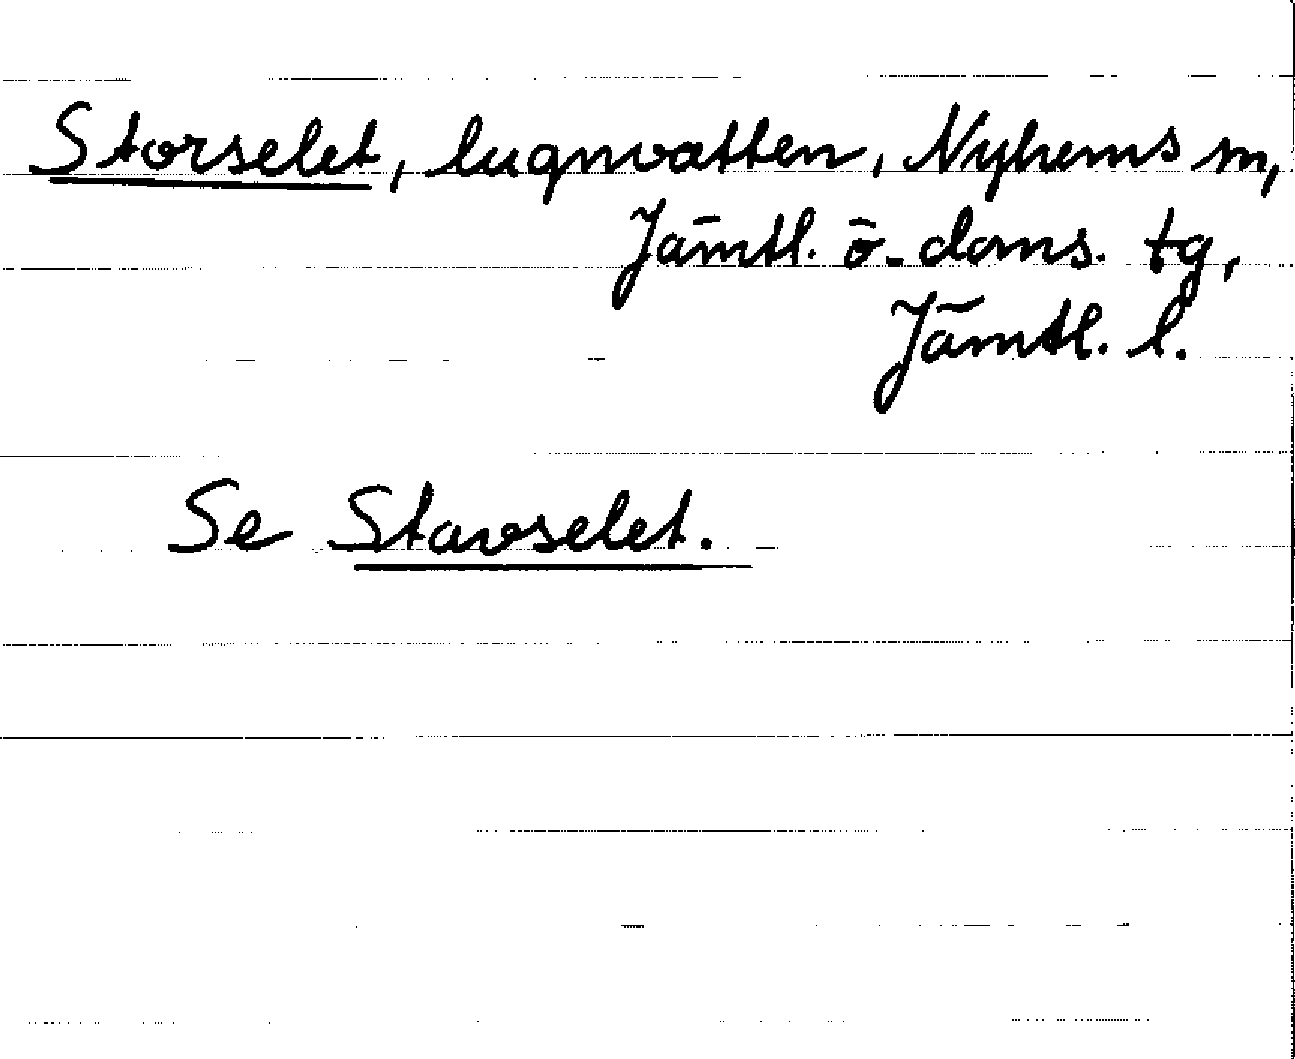 Storselet, lugnvatten, Nyhems sn,
Jämtl. ö. doms. tg,
Jämtl. l.
Se Stavselet.